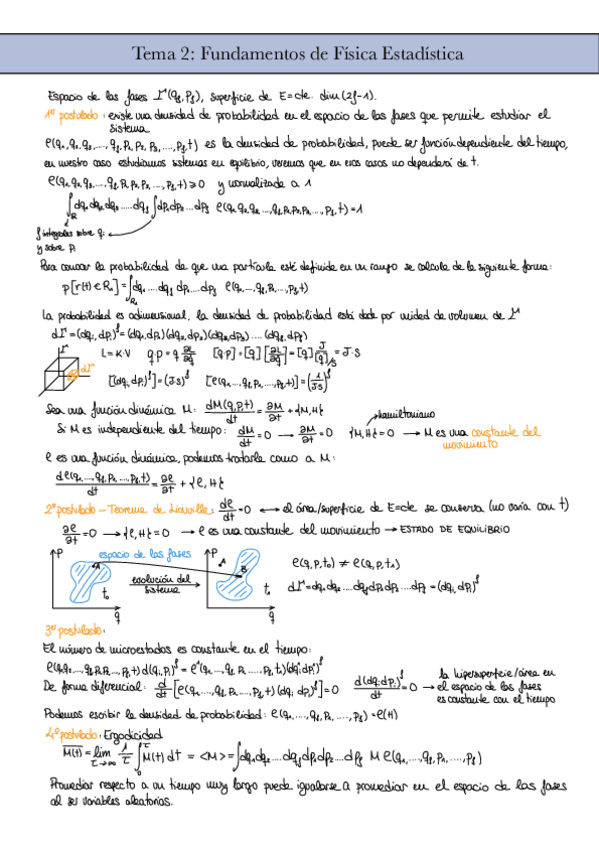 Tema 2: Fundamentos de Física Estadística
Espacio de las fases Γ(qf, pf), superficie de E=cte. dim(2f-1).
1º postulado: existe una densidad de probabilidad en el espacio de las fases que permite estudiar el
sistema
ρ(q₁,q₂,q₃,...,qf,p₁,p₂,p₃,...,pf,t) es la densidad de probabilidad, puede ser función dependiente del tiempo,
en nuestro caso estudiamos sistemas en equilibrio, veremos que en esos casos no dependerá de t.
ρ(q₁,q₂,q₃,...,qf,p₁,p₂,...,pf,t) ⩾ 0 y normalizada a 1
∫_R dq₁dq₂dq₃.....dqf ∫dp₁dp₂...dpf ρ(q₁,q₂,q₃,...,qf,p₁,p₂,p₃,...,pf,t)=1
f integrales sobre qi
y sobre pi
Para conocar la probabilidad de que una partícula esté definida en un rango se calcula de la siguiente forma:
p[r(t)∈R₁]=∫_R₁ dq₁....dqf dp₁....dpf ρ(q₁,...,qf,p₁,...,pf,t)
La probabilidad es adimensional, la densidad de probabilidad está dada por unidad de volumen de Γ
dΓ=(dqi,dpi)^f=(dq₁dp₁)(dq₂dp₂)(dq₃dp₃)....(dqf,dpf)
Γ
dΓ
L=K-V q·p=q ∂L/∂q̇ [q·p]=[q][∂L/∂q̇]=[q] J/[q]/s = J·S
[(dqi dpi)^f]=(JS)^f [ρ(q₁,...,qf,p₁,...,pf,t)]=(1/JS)^f
Sea una función dinámica M: dM(q,p,t)/dt = ∂M/∂t + {M,H}
hamiltoniano
Si M es independiente del tiempo: dM/dt=0 → ∂M/∂t=0 {M,H}=0 → M es una constante del
movimiento
ρ es una función dinámica, podemos tratarla como a M:
dρ(q₁,...,qf,p₁,...,pf,t)/dt = ∂ρ/∂t + {ρ,H}
2º postulado - Teorema de Liouville: dρ/dt=0 ↔ el área/superficie de E=cte se conserva (no varía con t)
∂ρ/∂t=0 → {ρ,H}=0 → ρ es una constante del movimiento → ESTADO DE EQUILIBRIO
P espacio de las fases P
A A B
t₀ evolución del sistema t₁
q q
ρ(q,p,t₀) ≠ ρ(q,p,t₁)
dΓ=dq₁dq₂....dqf dp₁dp₂....dpf=(dqi dpi)^f
3º postulado:
El número de microestados es constante en el tiempo:
ρ(q₁,q₂,...,qf,p₁,p₂,...,pf,t)d(qi,pi)^f = ρ'(q₁,...,qf,p₁,...,pf,t)(dqi'dpi')^f
De forma diferencial: d/dt[ρ(q₁,...,qf,p₁,...,pf,t)(dqi dpi)^f]=0 d(dqi dpi)^f/dt=0 → la hipersuperficie/área en
el espacio de las fases
es constante con el tiempo
Podemos escribir la densidad de probabilidad: ρ(q₁,...,qf,p₁,...,pf)=ρ(H)
4º postulado: Ergodicidad
M(t)=lim τ→∞ 1/τ ∫₀^τ M(t)dt = <M>=∫dq₁dq₂....dqf dp₁dp₂....dpf M ρ(q₁,...,qf,p₁,...,pf)
Promediar respecto a un tiempo muy largo puede igualarse a promediar en el espacio de las fases
al ser variables aleatorias.